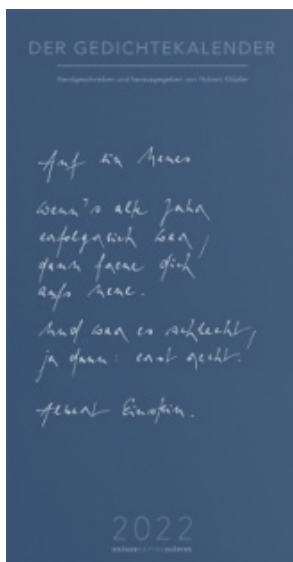 DER GEDICHTEKALENDER
Handgeschrieben und herausgegeben von Hubert Klöpfer
Auf ein Neues
wenn's alte Jahr
erfolgreich war,
dann freue dich
aufs neue.
und war es schlecht,
ja dann: erst recht.
Albert Einstein.
2022